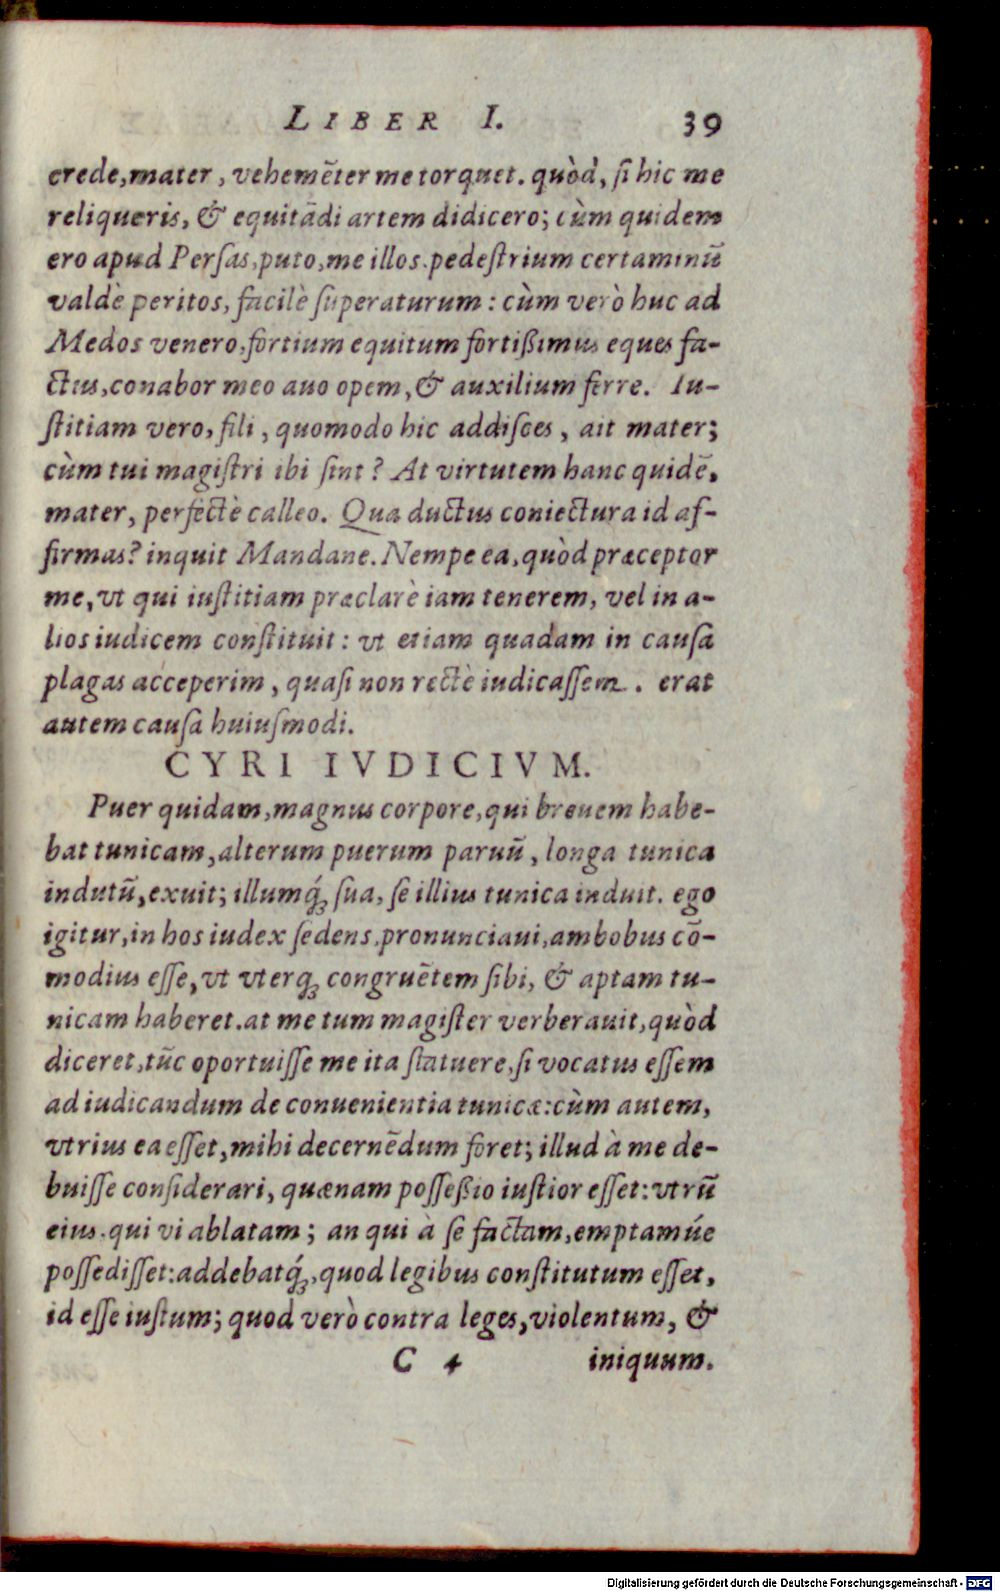 LIBER I. 39
crede, mater, vehemẽter me torquet. quòd, ſi hic me
reliqueris, & equitãdi artem didicero; cùm quidem
ero apud Perſas, puto, me illos, pedeſtrium certaminũ
valdè peritos, facilè ſuperaturum: cùm verò huc ad
Medos venero, fortium equitum fortißimus eques fa-
ctus, conabor meo auo opem, & auxilium ferre. Iu-
ſtitiam vero, fili, quomodo hic addiſces, ait mater;
cùm tui magiſtri ibi ſint? At virtutem hanc quidẽ,
mater, perfectè calleo. Qua ductus coniectura id af-
firmas? inquit Mandane. Nempe ea, quòd præceptor
me, vt qui iuſtitiam præclarè iam tenerem, vel in a-
lios iudicem conſtituit: vt etiam quadam in cauſa
plagas acceperim, quaſi non rectè iudicaſſem. erat
autem cauſa huiuſmodi.
CYRI IVDICIVM.
Puer quidam, magnus corpore, qui breuem habe-
bat tunicam, alterum puerum paruũ, longa tunica
indutũ, exuit; illumq́ꝫ ſua, ſe illius tunica induit. ego
igitur, in hos iudex ſedens, pronunciaui, ambobus cõ-
modius eſſe, vt vterqꝫ congruẽtem ſibi, & aptam tu-
nicam haberet. at me tum magiſter verberauit, quòd
diceret, tũc oportuiſſe me ita ſtatuere, ſi vocatus eſſem
ad iudicandum de conuenientia tunicæ: cùm autem,
vtrius ea eſſet, mihi decernẽdum foret; illud à me de-
buiſſe conſiderari, quænam poſſeßio iuſtior eſſet: vtrũ
eius, qui vi ablatam; an qui à ſe factam, emptamúe
poſſediſſet: addebatq́ꝫ, quod legibus conſtitutum eſſet,
id eſſe iuſtum; quod verò contra leges, violentum, &
C 4 iniquum.
Digitalisierung gefördert durch die Deutsche Forschungsgemeinschaft - DFG